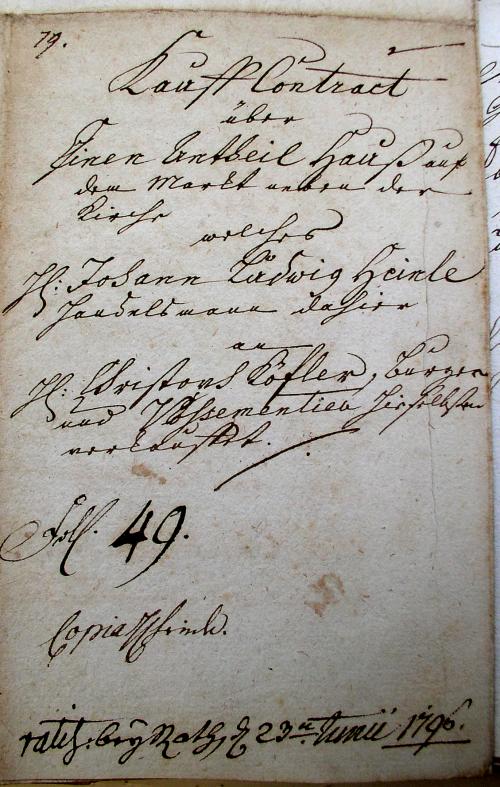 79.
Kauff Contract
über
Einen Antheil Hauß auf
dem Markt neben der
Kirche
welches
H: Johann Ludwig Heinle
Handelsmann dahier
an
H: Christoph Höfler, Burger
und Possementier hieselbsten
verkauffet.
Foll. 49.
ratif: bey Rath, d 23ten Junii 1796.